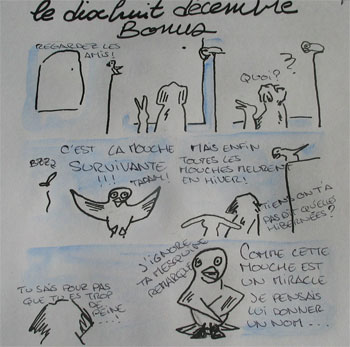 le dixhuit décembre
Bonus
REGARDEZ LES
AMIS!
QUOI?
?
C'EST LA MOUCHE
SURVIVANTE
!!!
TADAM!
BZZZ
MAIS ENFIN
TOUTES LES
MOUCHES MEURENT
EN HIVER!
TIENS ON T'A
PAS DIT QU'ELLES
HIBERNÉES?
TU SAIS POUR PAS
QUE TU AIES TROP
DE
PEINE....
J'IGNORE
TA MESQUINE
REMARQUE
COMME CETTE
MOUCHE EST
UN MIRACLE
JE PENSAIS
LUI DONNER
UN NOM....